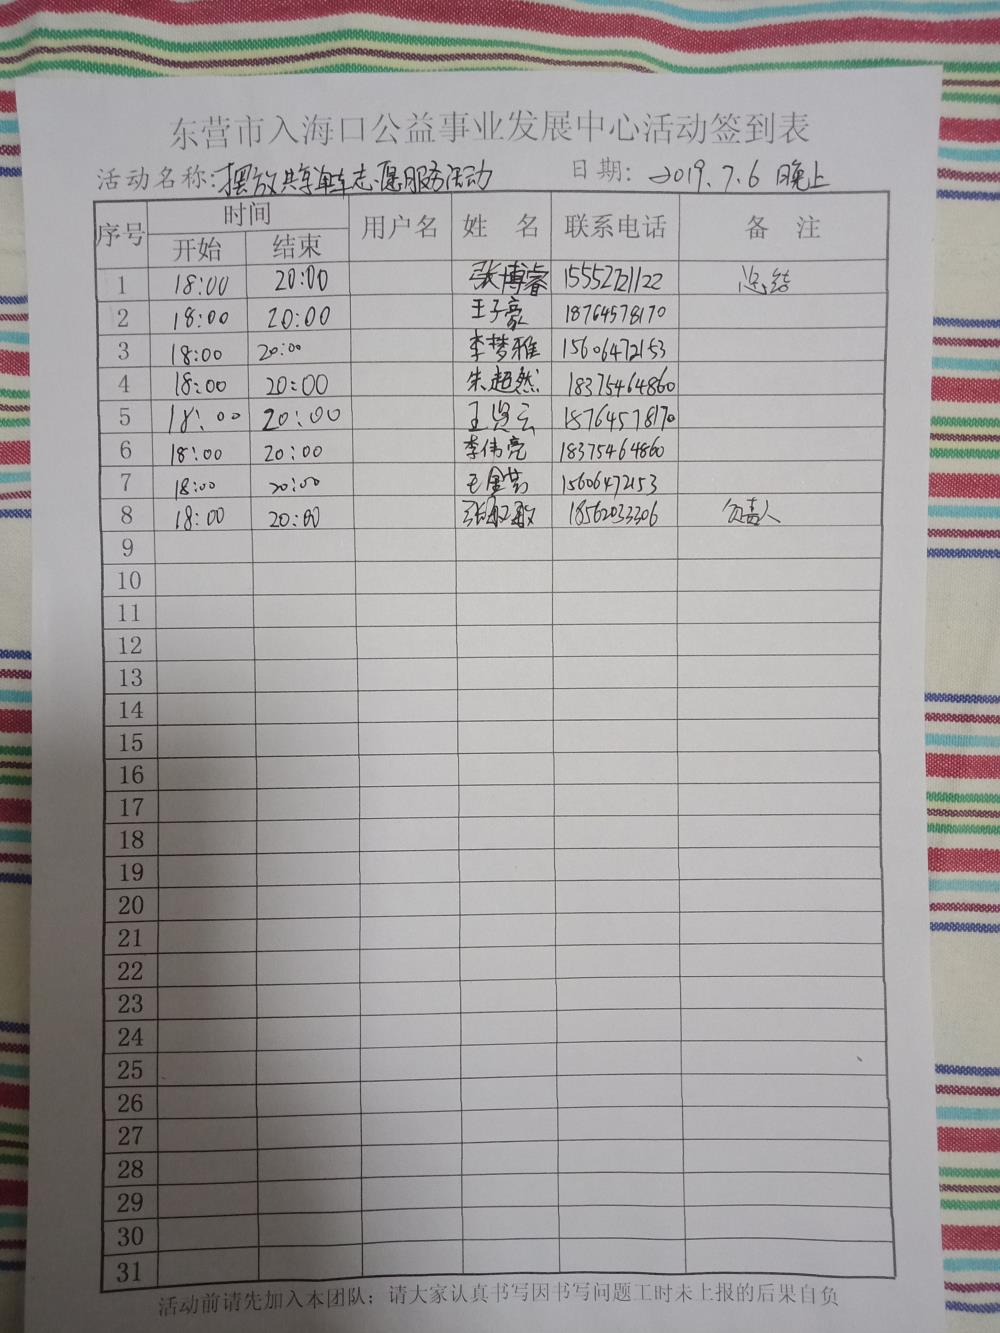 东营市入海口公益事业发展中心活动签到表
活动名称:摆放共享单车志愿服务活动 日期: 2019.7.6 晚上
序号 时间 用户名 姓 名 联系电话 备 注
开始 结束
1 18:00 20:00 张博睿 15552721122 总结
2 18:00 20:00 王子豪 18764578170
3 18:00 20:00 李梦雅 15606472153
4 18:00 20:00 朱超然 18375464860
5 18:00 20:00 王贤云 18764578170
6 18:00 20:00 李伟亮 18375464860
7 18:00 20:00 15606472153
8 18:00 20:00 18562033306 负责人
9
10
11
12
13
14
15
16
17
18
19
20
21
22
23
24
25
26
27
28
29
30
31
活动前请先加入本团队；请大家认真书写因书写问题工时未上报的后果自负